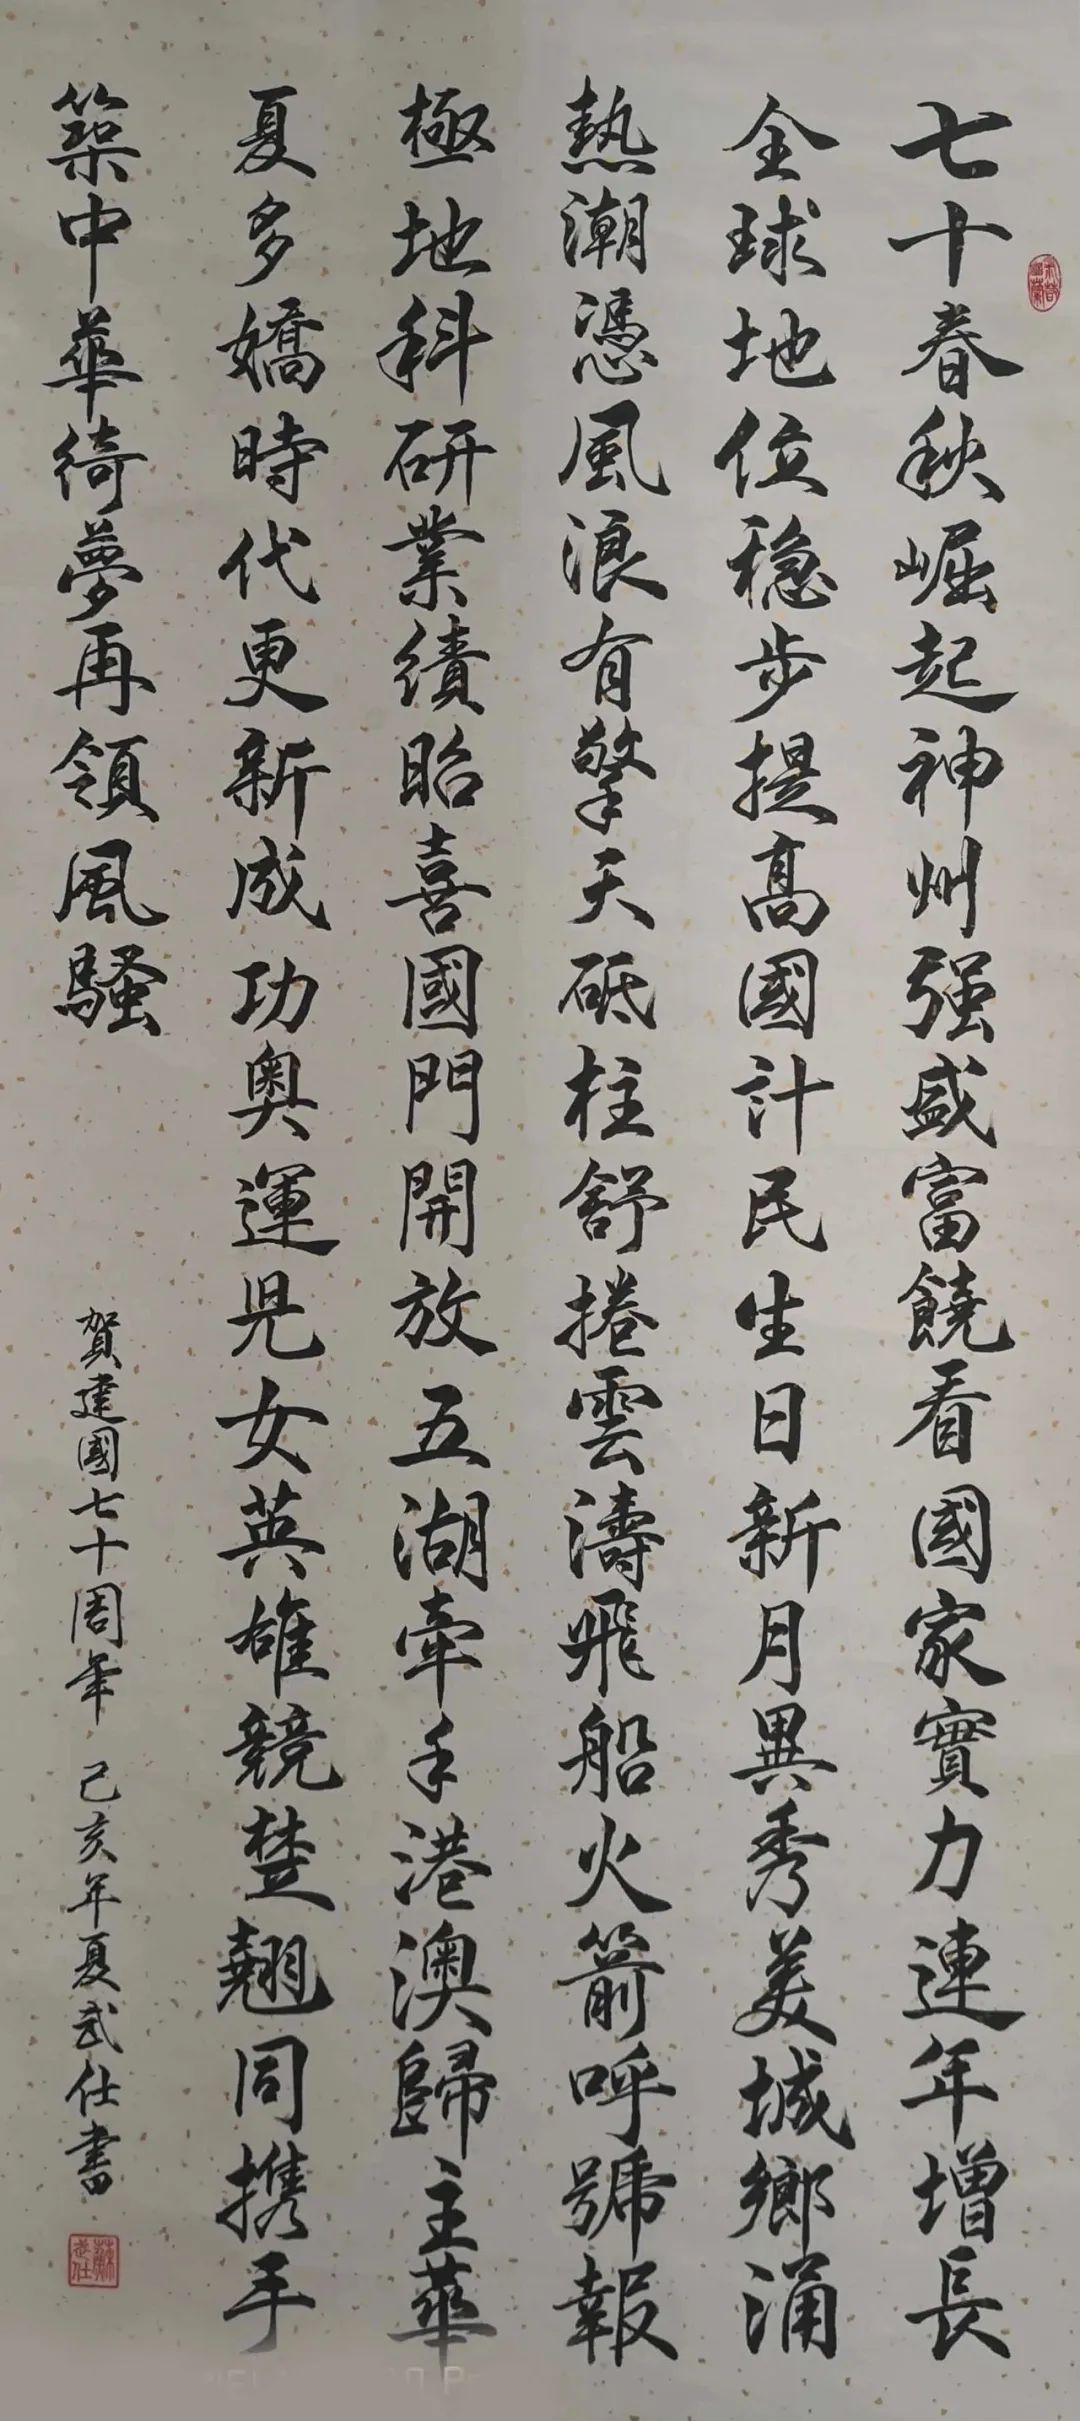 七十春秋崛起神州强盛富饒看國家實力連年增長
全球地位稳步提高國計民生日新月異秀美城鄉涌
熱潮憑風浪有擎天砥柱舒捲雲濤飛船火箭呼號報
極地科研業績昭喜國門開放五湖牽手港澳歸主華
夏多嬌時代更新成功奥運児女英雄競楚翹同携手
築中華綺夢再領風騷
賀建國七十周年 己亥年夏武仕書
蘇武仕